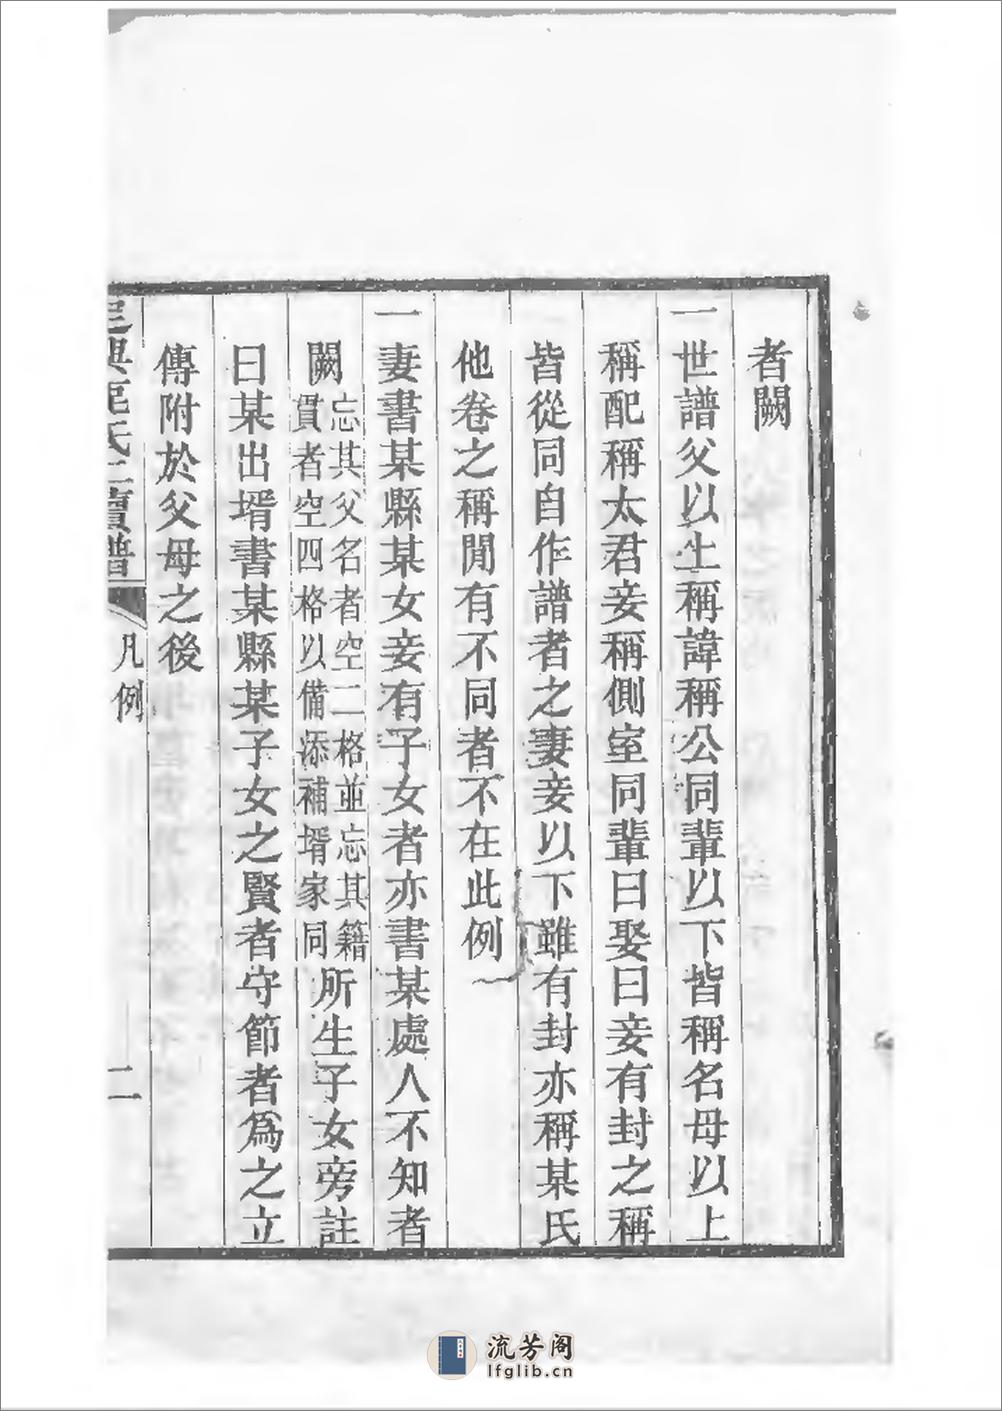 者闕
一世譜父以生稱諱稱公同輩以下皆稱名母以上
稱配稱太君妾稱側室同輩曰娶曰妾有封之稱
皆從同自作譜者之妻妾以下雖有封亦稱某氏
他卷之稱閒有不同者不在此例
一妻書某縣某女妾有子女者亦書某處人不知者
闕忘其父名者空二格並忘其籍
貫者空四格以備添補壻家同所生子女旁註
曰某出壻書某縣某子女之賢者守節者爲之立
傳附於父母之後
興 氏二續譜
凡例
二
流芳阁
lfglib.cn